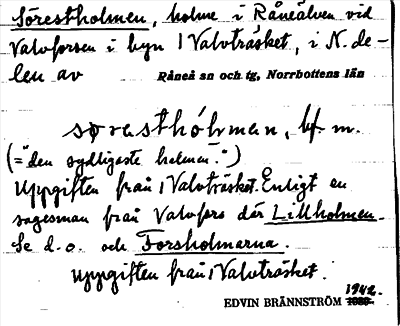 Sörestholmen, holme i Råneälven vid
Valvforsen i byn 1 Valvträsket, i N. de-
len av Råneå sn och tg, Norrbottens län
søresthólman, bf. m.
(= "den sydligaste holmen".")
Uppgiften från 1 Valvträsket. Enligt en
sagesman från Valvfors där Lillholmen.
Se d.o. och Forsholmarna.
Uppgiften från 1 Valvträsket.
1942.
EDVIN BRÄNNSTRÖM